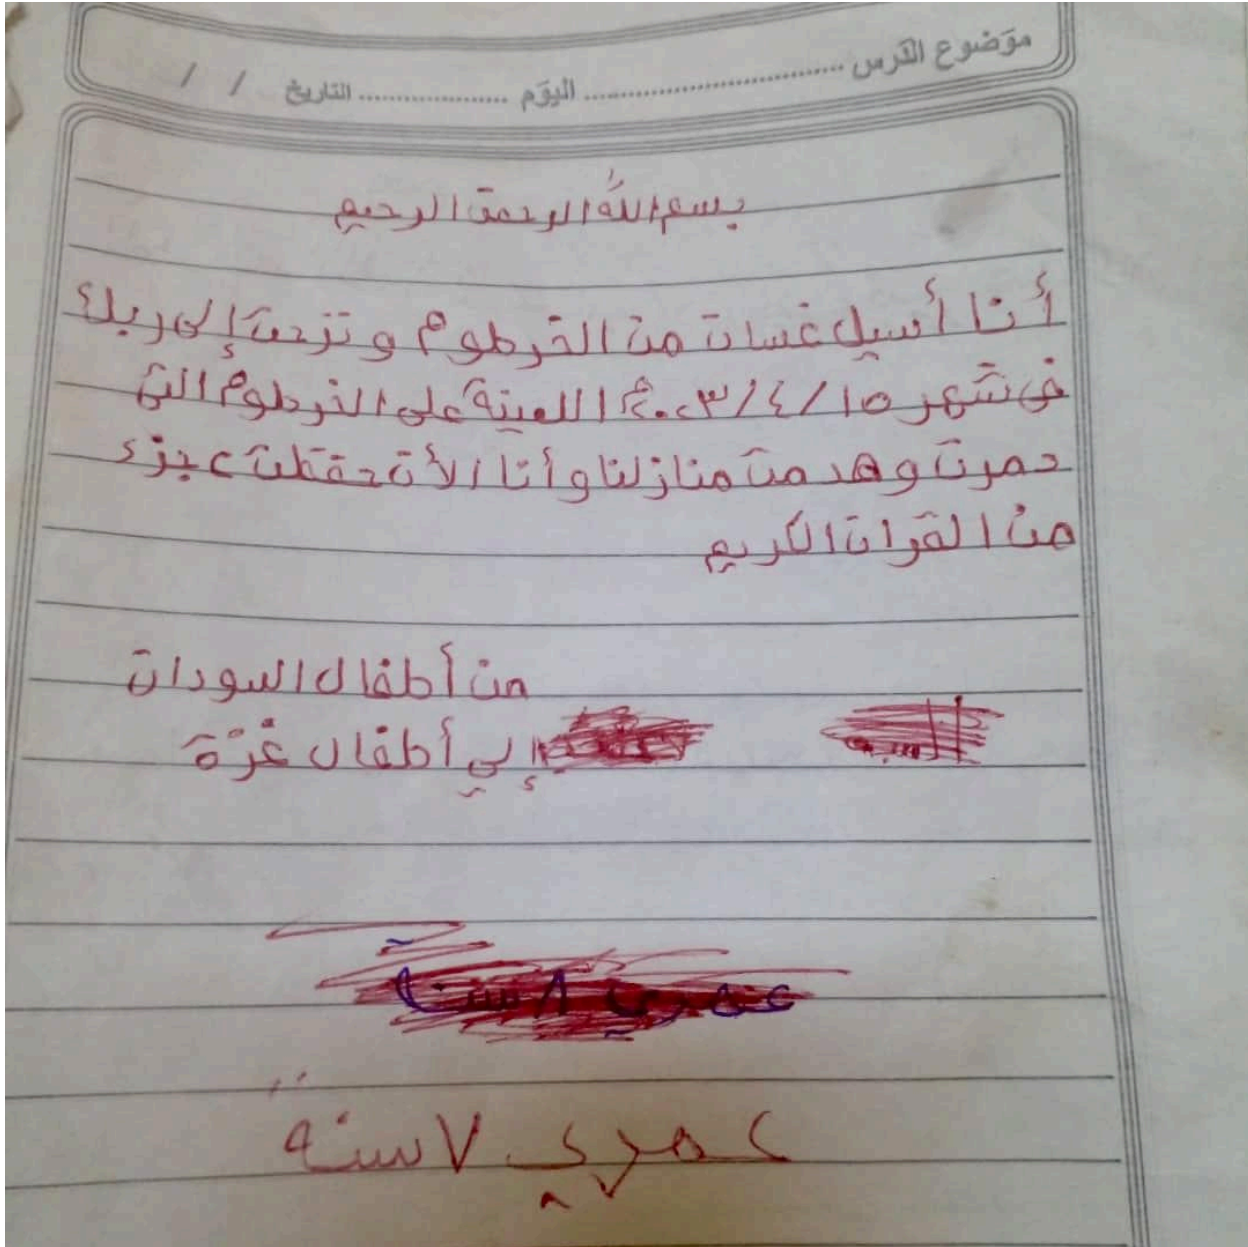 موضوع الدرس ........................ اليوم .................... التاريخ / /
بسم الله الرحمن الرحيم
أنا أسيل غسان من الخرطوم ونزحت إلى ربك
في شهر ١٥/٤/٢٠٢٣م اللعينة على الخرطوم التي
دمرت وهدمت منازلنا وأنا الأن حفظت ٤ جزء
من القران الكريم
من أطفال السودان
إلي أطفال غزة
عمري ٧ سنة